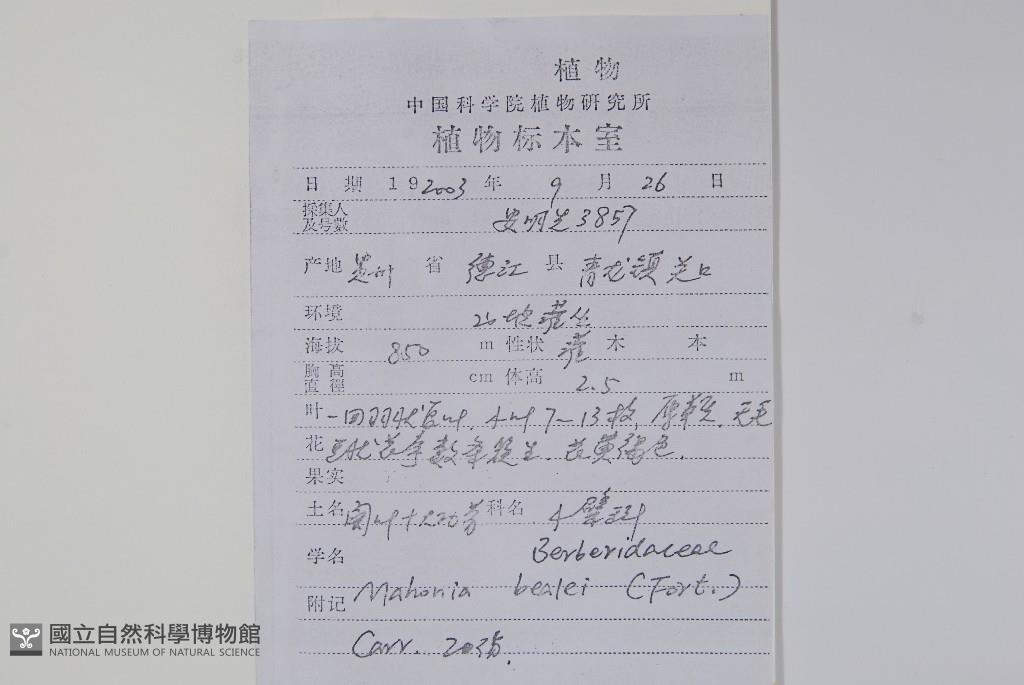 植物
中国科学院植物研究所
植物标本室
日期 19 2003 年 9 月 26 日
採集人及号數 安明先 3857
产地 贵州 省 德江 县 青龙镇 关口
环境 山地灌丛
海拔 850 m 性状 灌 木 本
胸高直徑 cm 体高 2.5 m
叶 一回羽状复叶, 小叶7-13枚, 厚革质, 无毛
花 总状花序数条簇生. 花黄褐色.
果实
土名 阔叶十大功劳 科名 小檗科
学名 Berberidaceae
附记 Mahonia bealei (Fort.)
Carr. 20份.
國立自然科學博物館
NATIONAL MUSEUM OF NATURAL SCIENCE